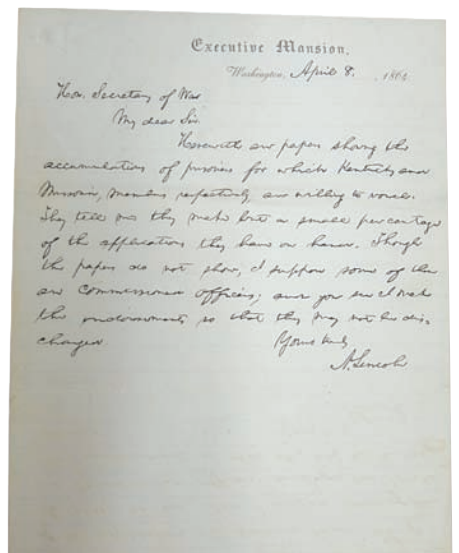 Executive Mansion,
Washington, April 8. , 186
Hon. Secretary of War
My dear Sir.
Herewith are papers showing the
accumulations of prisoners for which Kentucky and
Missouri, members respectively are willing to vouch.
They tell me they make but a small percentage
of the applications they have on hand. Though
the papers do not show, I suppose some of them
are commissioned officers; and you see I make
the endorsements so that they may not be dis-
charged
Yours truly
A. Lincoln